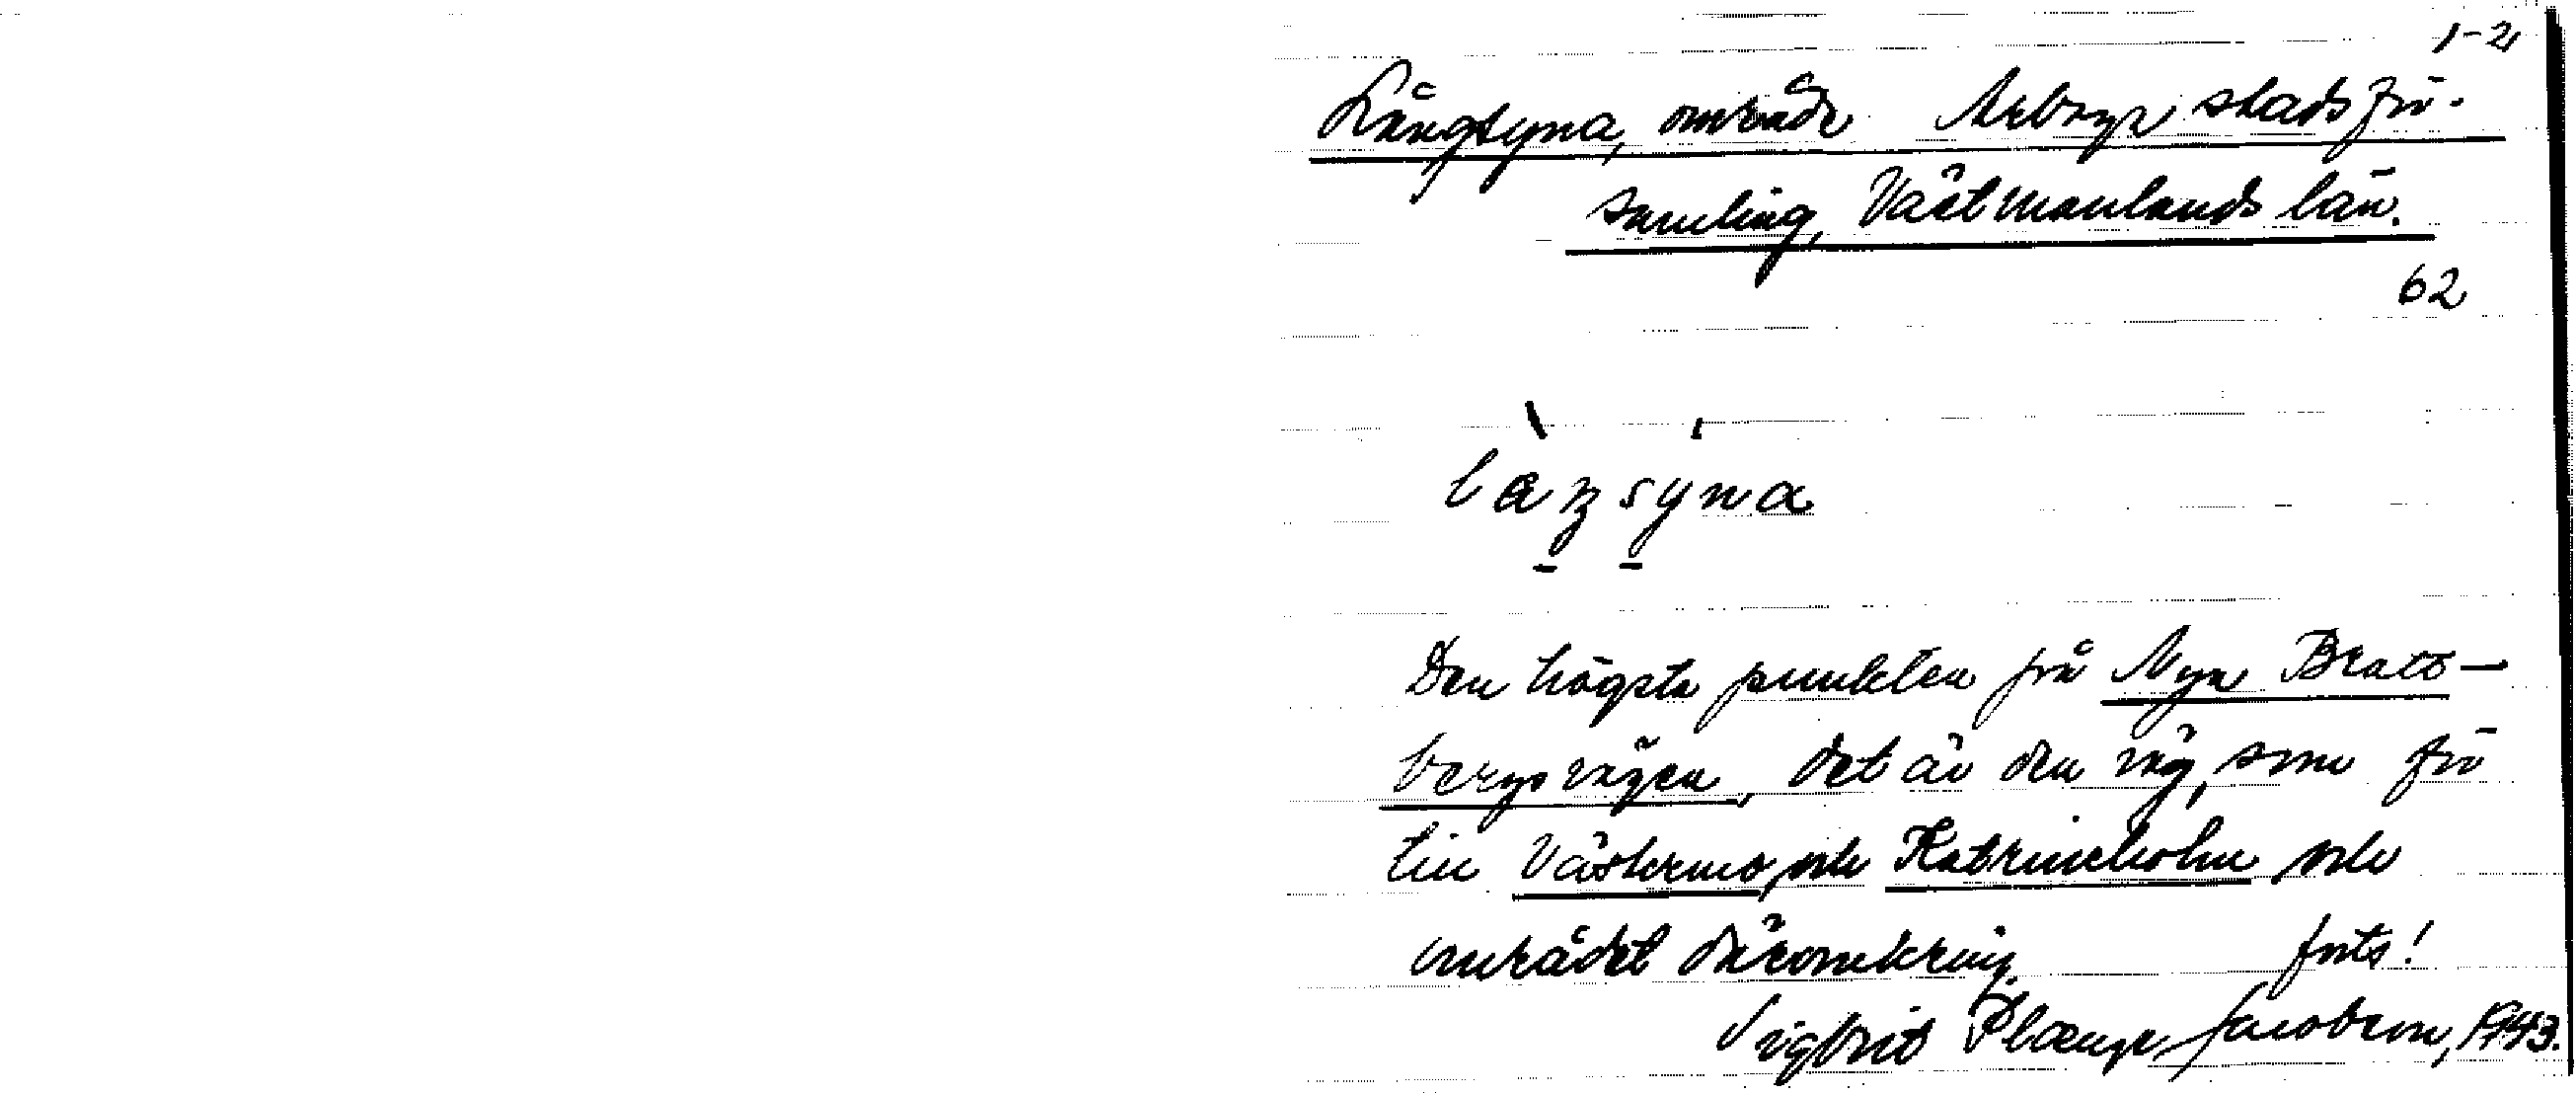 1-2
Långtyna, område Arboga stadsför-
samling, Västmanlands län.
62
Den högsta punkten på Nya Bratt-
bergsvägen, det är den väg, som för
till Västermo, och Katrineholm och
området däromkring. forts!
Sigbrit Plænge Jacobson, 1943.